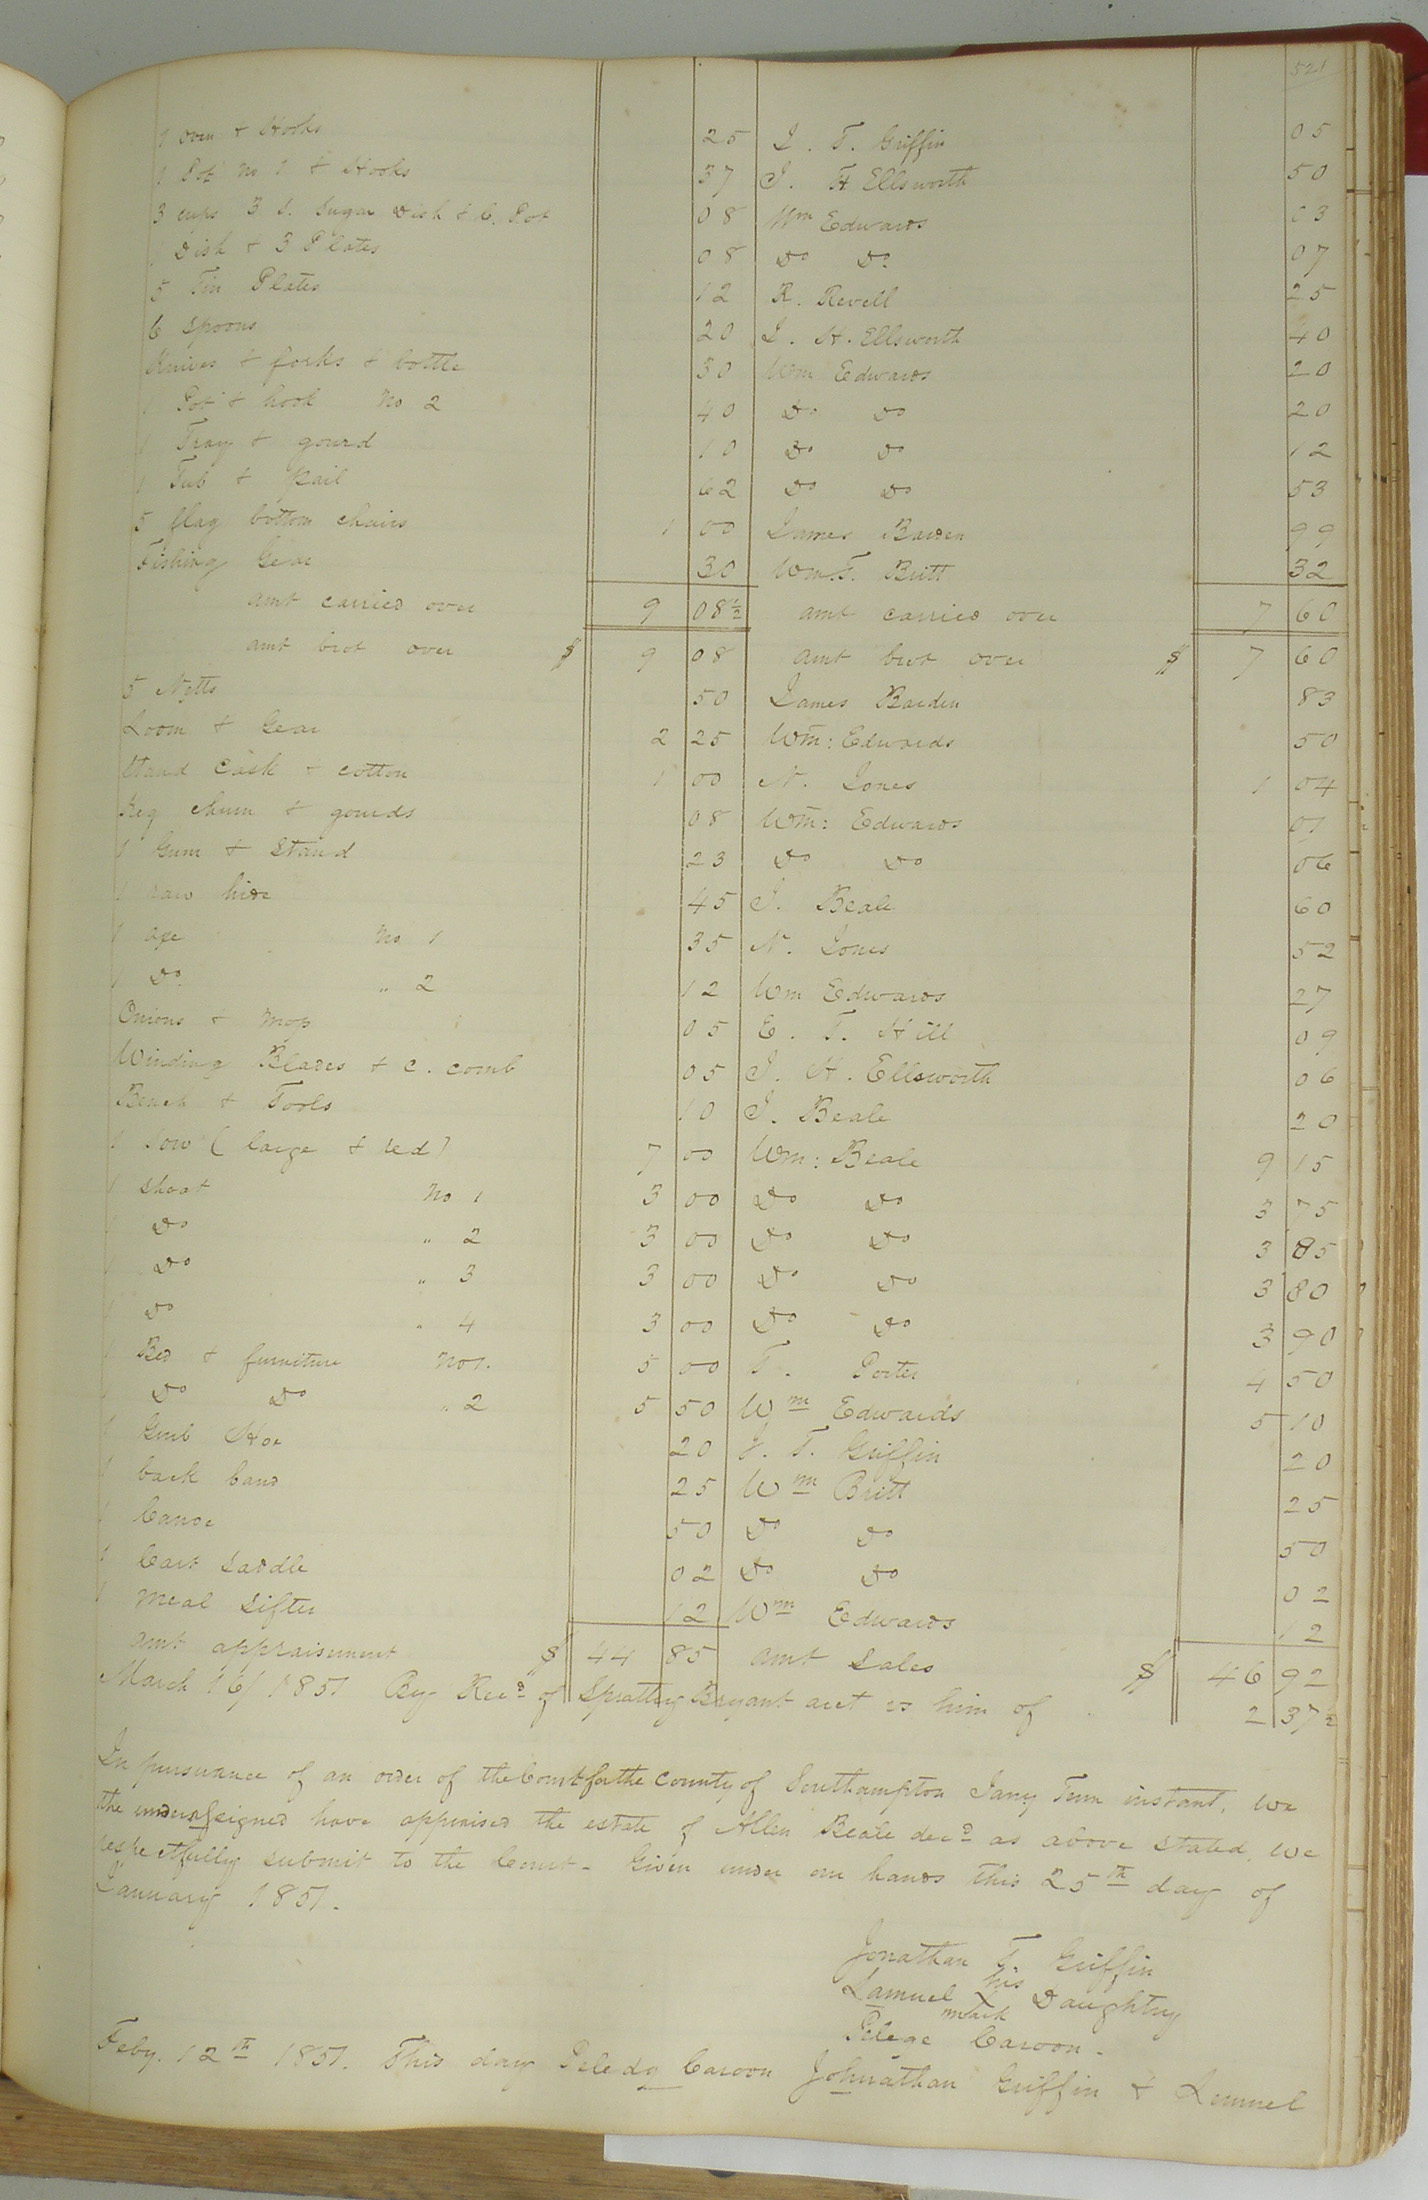 521
1 oven & Hooks 25 J. T. Griffin 05
1 Pot No 1 & Hooks 37 J. H Ellsworth 50
3 cups 3 S. Sugar Dish & C. Pot 08 Wm Edwards 03
1 Dish & 3 Plates 08 Do Do 07
5 Tin Plates 12 R. Revell 25
6 Spoons 20 J. H. Ellsworth 40
Knives & forks & bottle 30 Wm Edwards 20
1 Pot & hook No 2 40 Do Do 20
1 Tray & gourd 10 Do Do 12
1 Tub & Pail 62 Do Do 53
5 flag bottom chairs 1 00 James Barden 99
Fishing Gear 30 Wm. T. Britt 32
amt carried over 9 08 1/2 amt carried over 7 60
amt brot over $ 9 08 amt brot over $ 7 60
5 Netts 50 James Barden 83
Loom & Gear 2 25 Wm: Edwards 50
Stand Cask & cotton 1 00 N. Jones 1 04
Keg churn & gourds 08 Wm: Edwards 01
1 Gum & Stand 23 Do Do 06
1 raw hide 45 J. Beale 60
1 axe No 1 35 N. Jones 52
1 Do " 2 12 Wm Edwards 27
Onions & Mop 05 E. T. Hill 09
Winding Blades & c. comb 05 J. H. Ellsworth 06
Bench & Tools 10 J. Beale 20
1 Sow (large & red) 7 00 Wm: Beale 9 15
1 Shoat No 1 3 00 Do Do 3 75
1 Do " 2 3 00 Do Do 3 85
1 Do " 3 3 00 Do Do 3 80
1 Do " 4 3 00 Do Do 3 90
1 Bed & furniture No 1. 5 00 T. Porter 4 50
1 Do Do " 2 5 50 Wm Edwards 5 10
1 Grub Hoe 20 J. T. Griffin 20
1 back band 25 Wm Britt 25
1 Canoe 50 Do Do 50
1 Cart Saddle 02 Do Do 02
1 Meal Sifter 12 Wm Edwards 12
amt appraisement $ 44 85 amt Sales $ 46 92
March 16/ 1851 By Recd of Sprattly Bryant acct vs him of 2 37 1/2
In pursuance of an order of the Court for the County of Southampton Jany Term instant, we
the undersigned have appraised the estate of Allen Beale decd as above stated, we
respectfully submit to the Court - Given under our hands this 25th day of
January 1851.
Jonathan T. Griffin
Lamuel his X mark Daughtry
Pelege Caroon.
Feby. 12th 1851. This day Peledg Caroon Johnathan Griffin & Lemuel